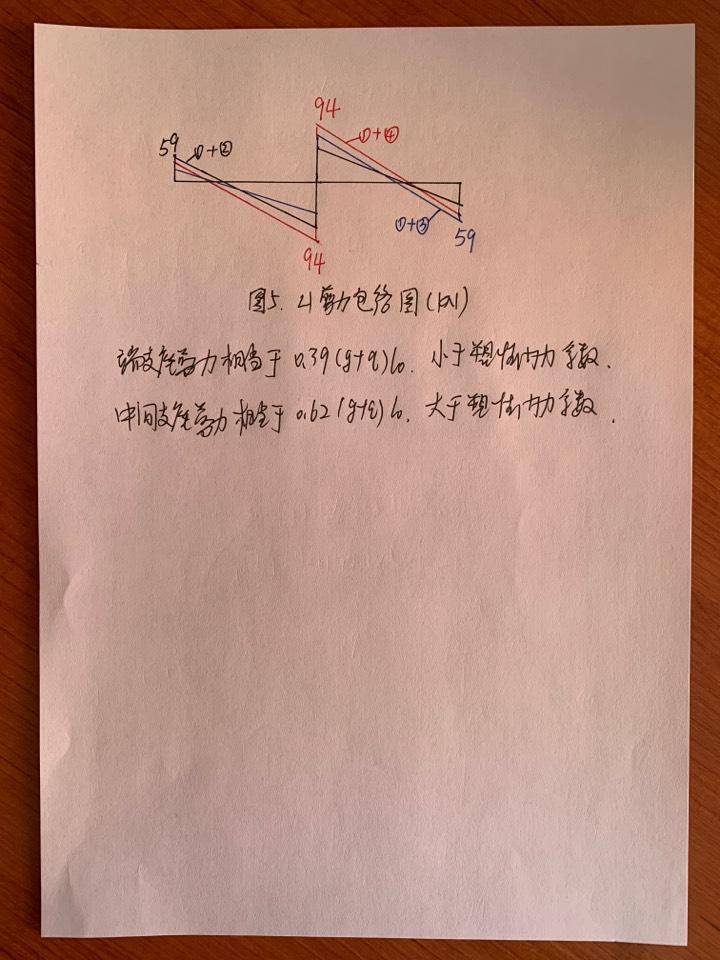 94
59 ①+② ①+④
①+③ 59
94
图5. L1剪力包络图(kN)
端支座剪力相当于 0.39(g+q)l0. 小于塑性内力系数.
中间支座剪力相当于 0.62(g+q)l0. 大于塑性内力系数.